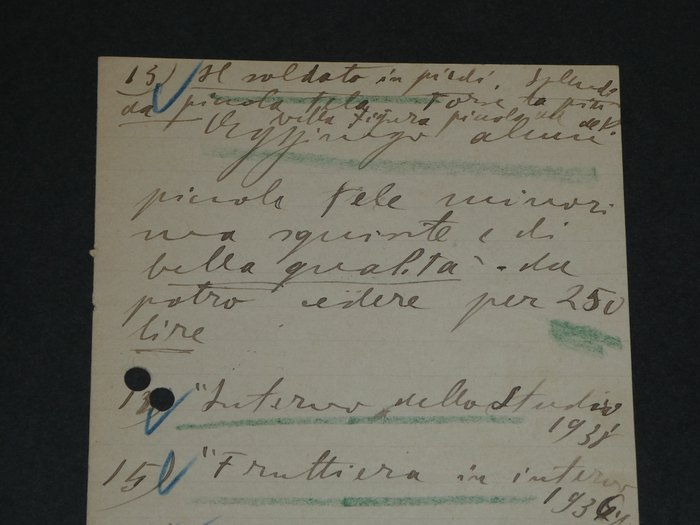 13) Il soldato in piedi. Splendi
da piccola tela Forse la più
bella Figura piccola
Aggiungo alcune
piccole tele minori
ma squisite e di
bella qualità - da
potro cedere per 250
lire
"Interno dello Studio
1938
15) "Fruttiera in interno
1936